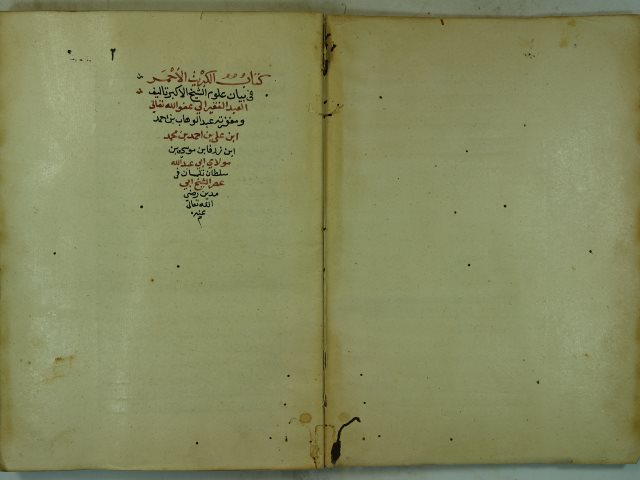 ٢
كتاب الكبريت الأحمر
في بيان علوم الشيخ الاكبر تاليف
العبد الفقير الي عفو الله تعالى
ومغفرته عبد الوهاب بن احمد
ابن علي بن احمد بن محمد
ابن زرفا بن موسي بن
مولاي ابي عبد الله
سلطان تلمسان في
عصر الشيخ ابي
مدين رضي
الله تعالى
عنه
م